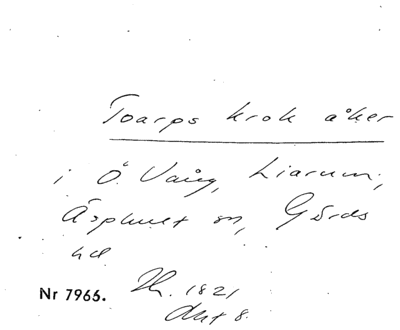 Toarps krok åker
i Ö. Vång, Liarum,
Äsphult sn, Gärds
hd
Nr 7966. Sk. 1821
Akt 8.